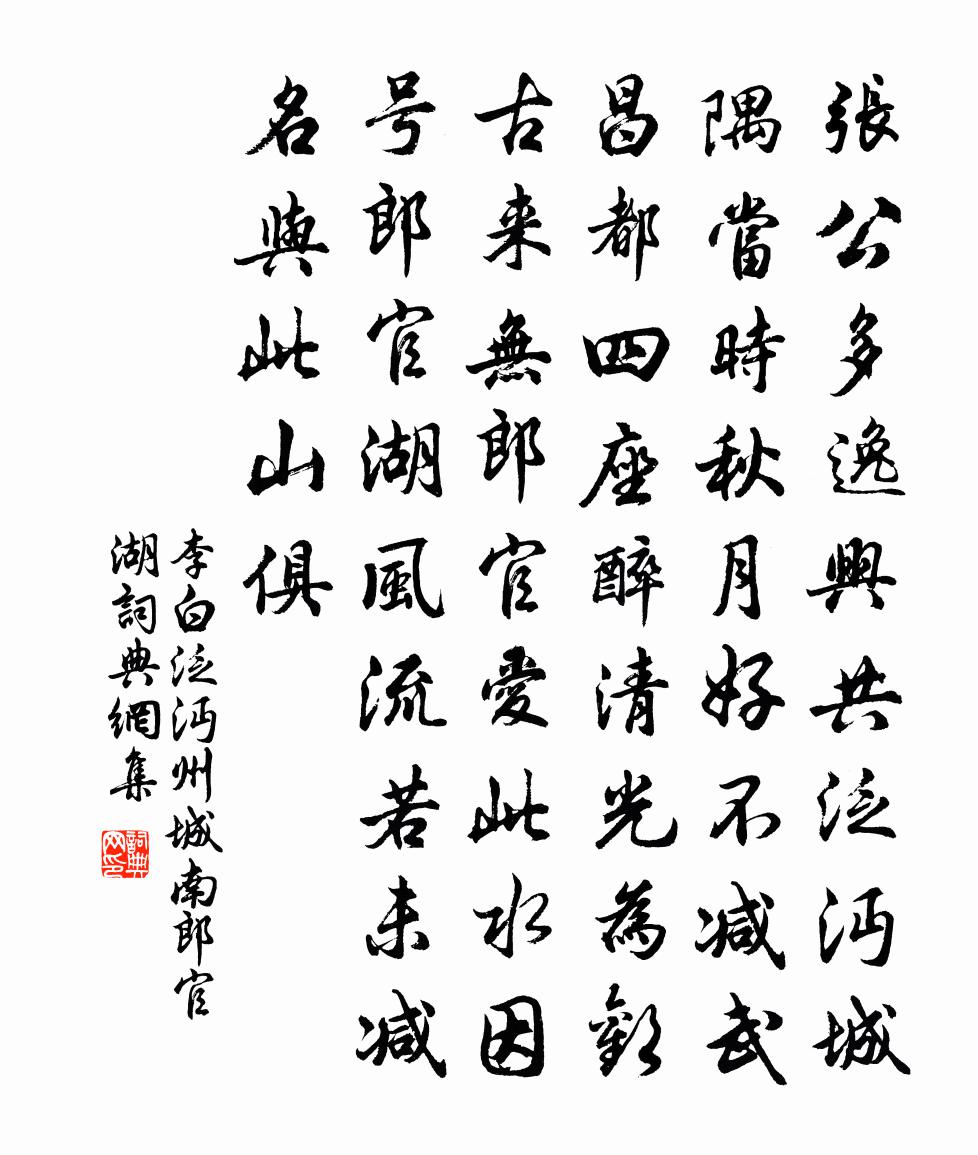 張公多逸興共泛沔城
隅當時秋月好不减武
昌都四座醉清光為歡
古来無郎官愛此水因
号郎官湖風流若未减
名與此山俱
李白泛沔州城南郎官
湖詞典網集
詞典網印